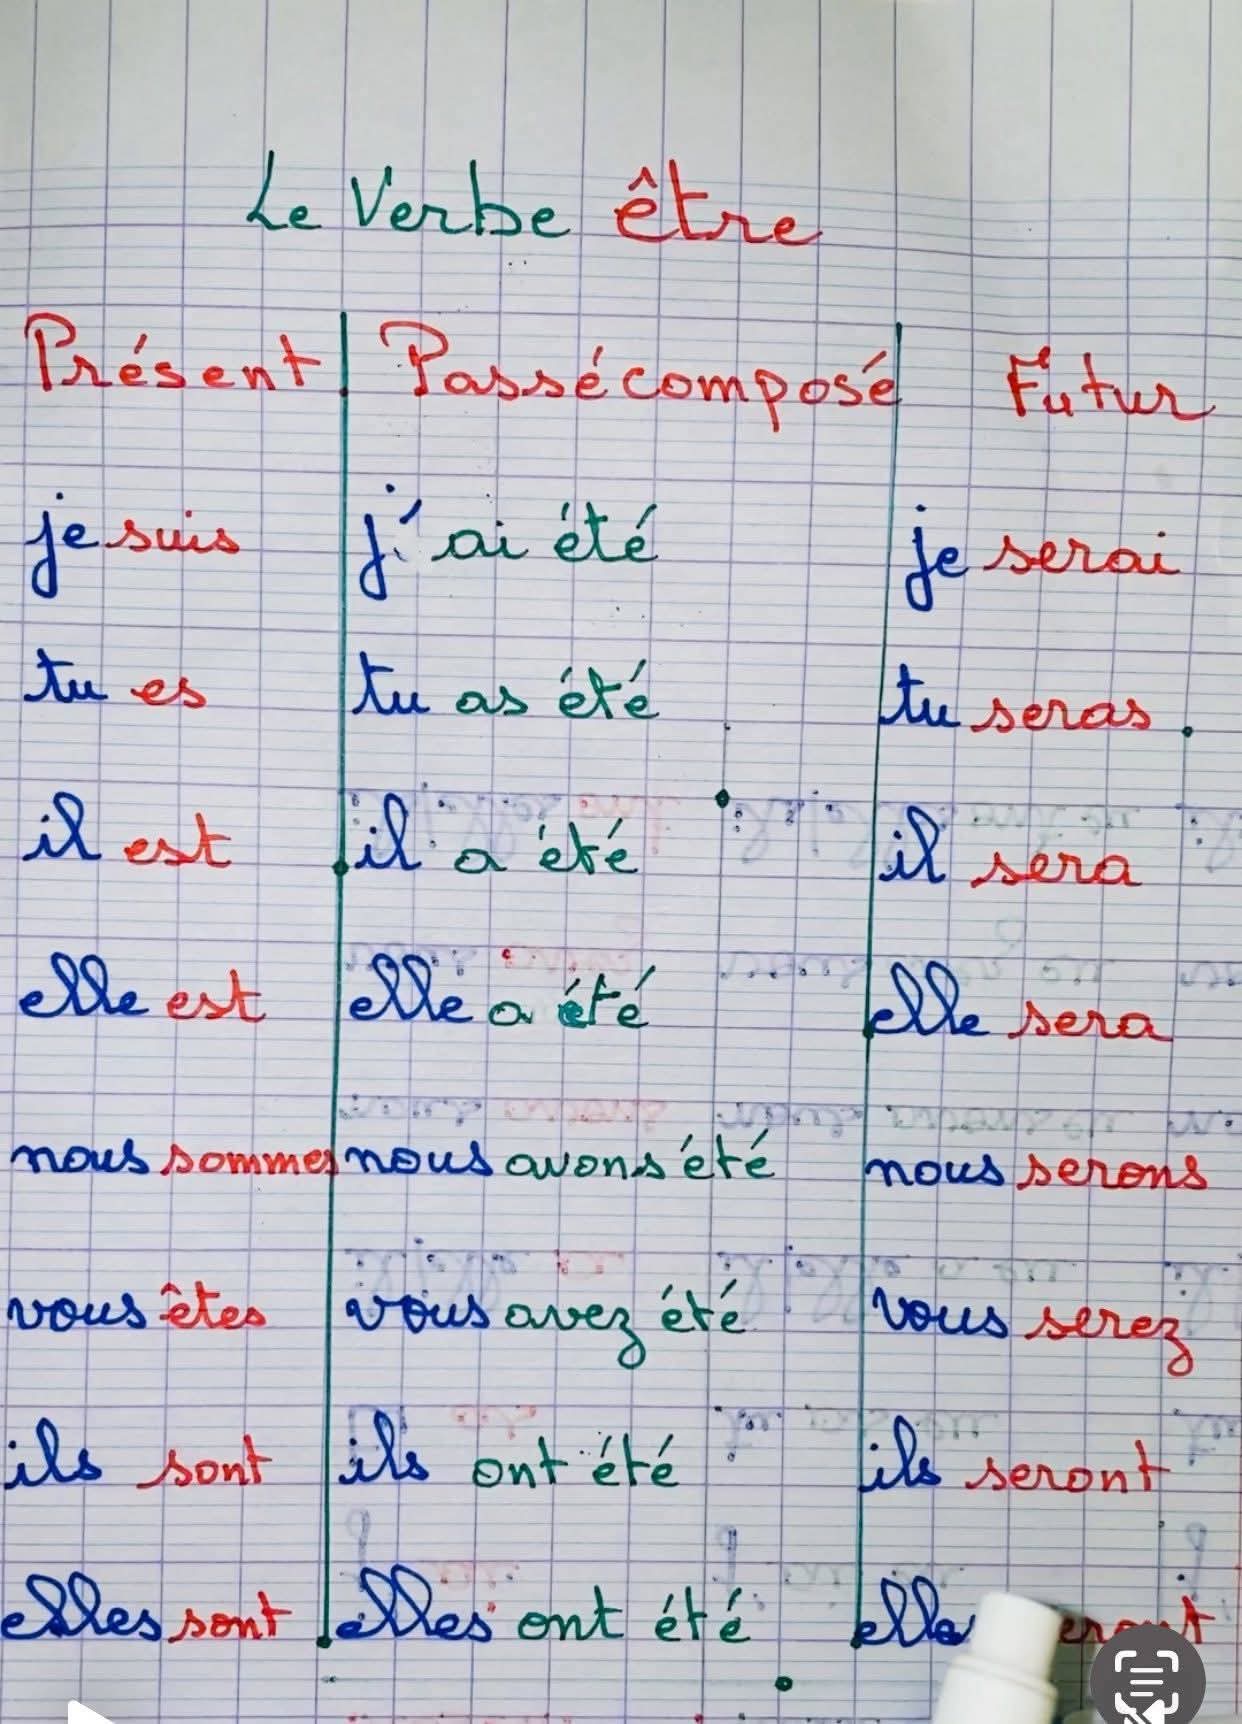 Le Verbe être
Présent Passé composé Futur
je suis j'ai été je serai
tu es tu as été tu seras
il est il a été il sera
elle est elle a été elle sera
nous sommes nous avons été nous serons
vous êtes vous avez été vous serez
ils sont ils ont été ils seront
elles sont elles ont été